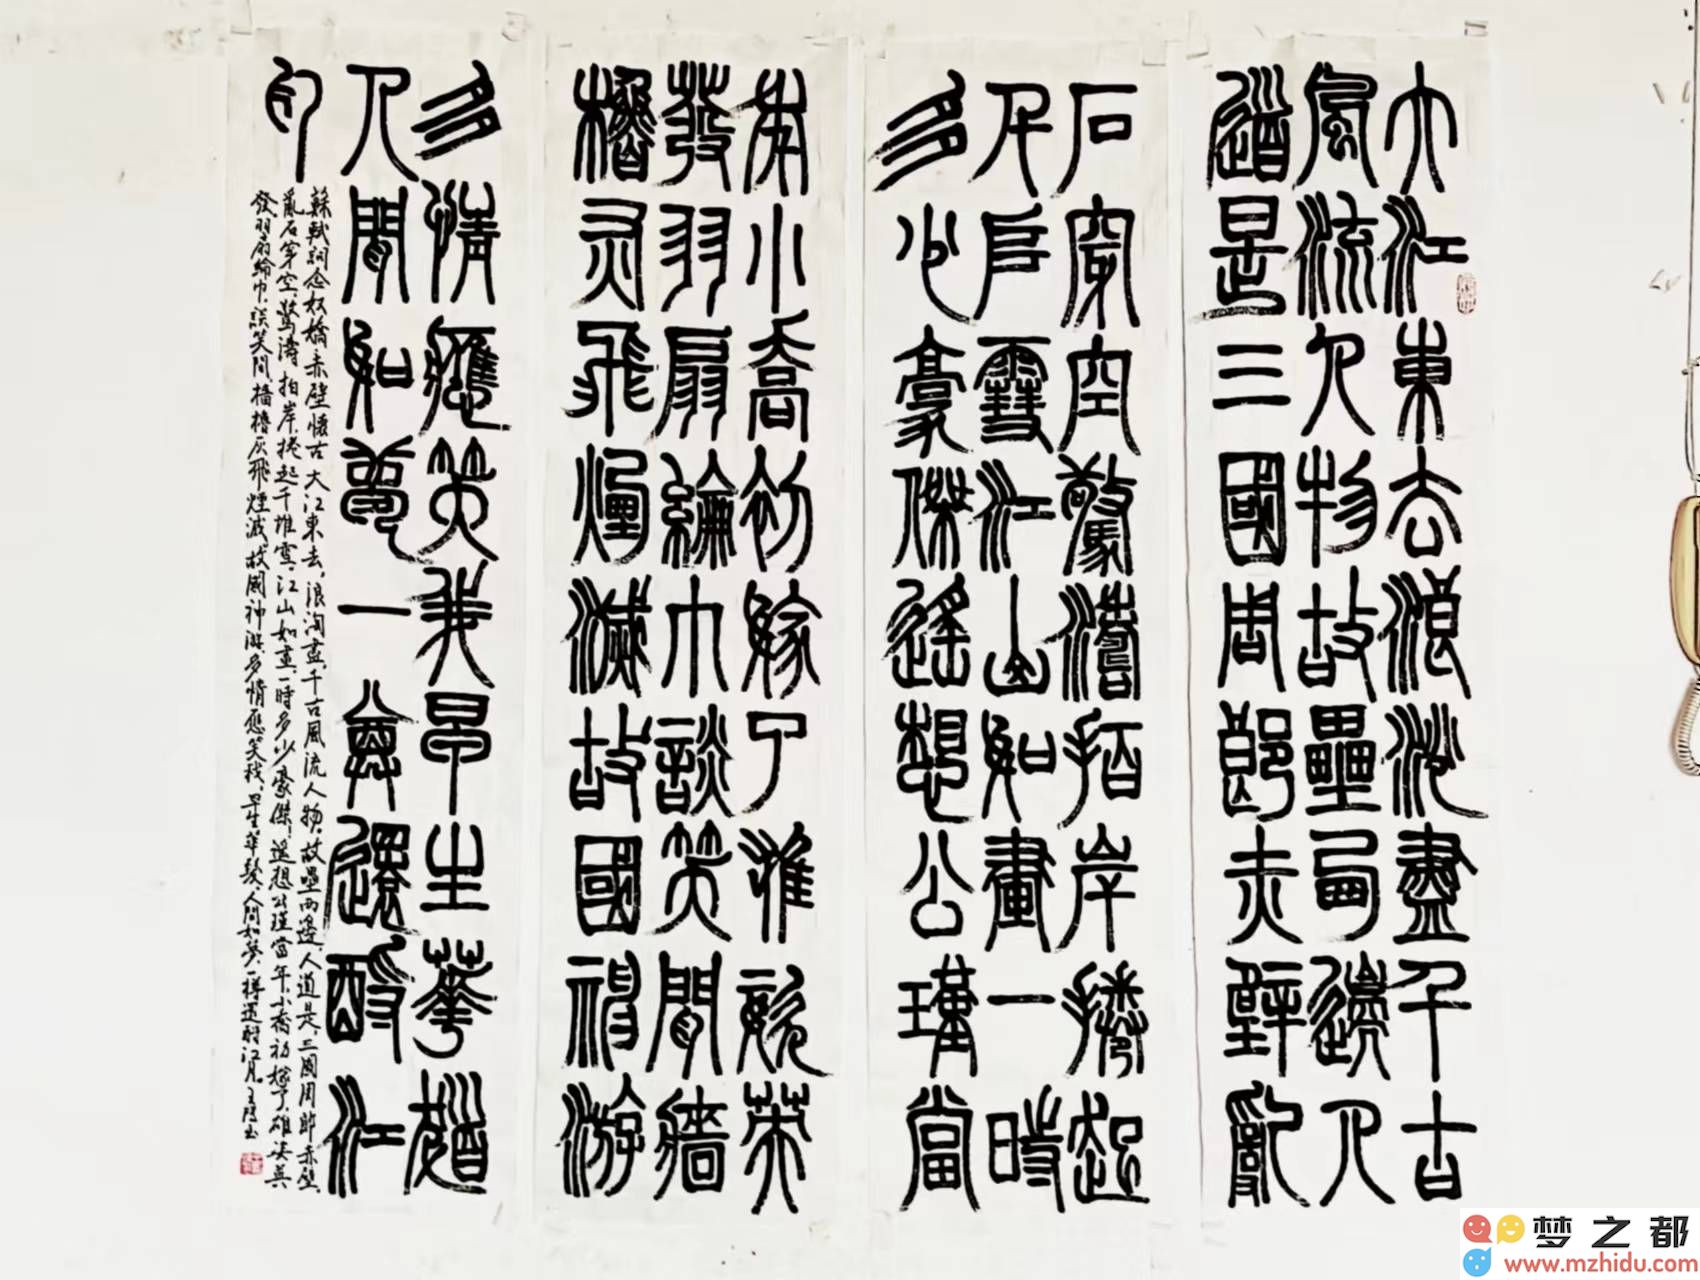 大江東去浪淘盡千古
風流人物故壘西邊人
道是三國周郎赤壁亂
石穿空驚濤拍岸捲起
千堆雪江山如畫一時
多少豪傑遙想公瑾當
年小喬初嫁了雄姿英
發羽扇綸巾談笑間檣
櫓灰飛煙滅故國神游
多情應笑我早生華髮
人間如夢一尊還酹江
月
蘇軾詞念奴嬌赤壁懷古 大江東去，浪淘盡，千古風流人物。故壘西邊，人道是，三國周郎赤壁。
亂石穿空，驚濤拍岸，捲起千堆雪。江山如畫，一時多少豪傑！遙想公瑾當年，小喬初嫁了，雄姿英
發羽扇綸巾，談笑間檣櫓灰飛煙滅。故國神游，多情應笑我，早生華髮，人間如夢，一樽還酹江月
梦之都
www.mzhidu.com